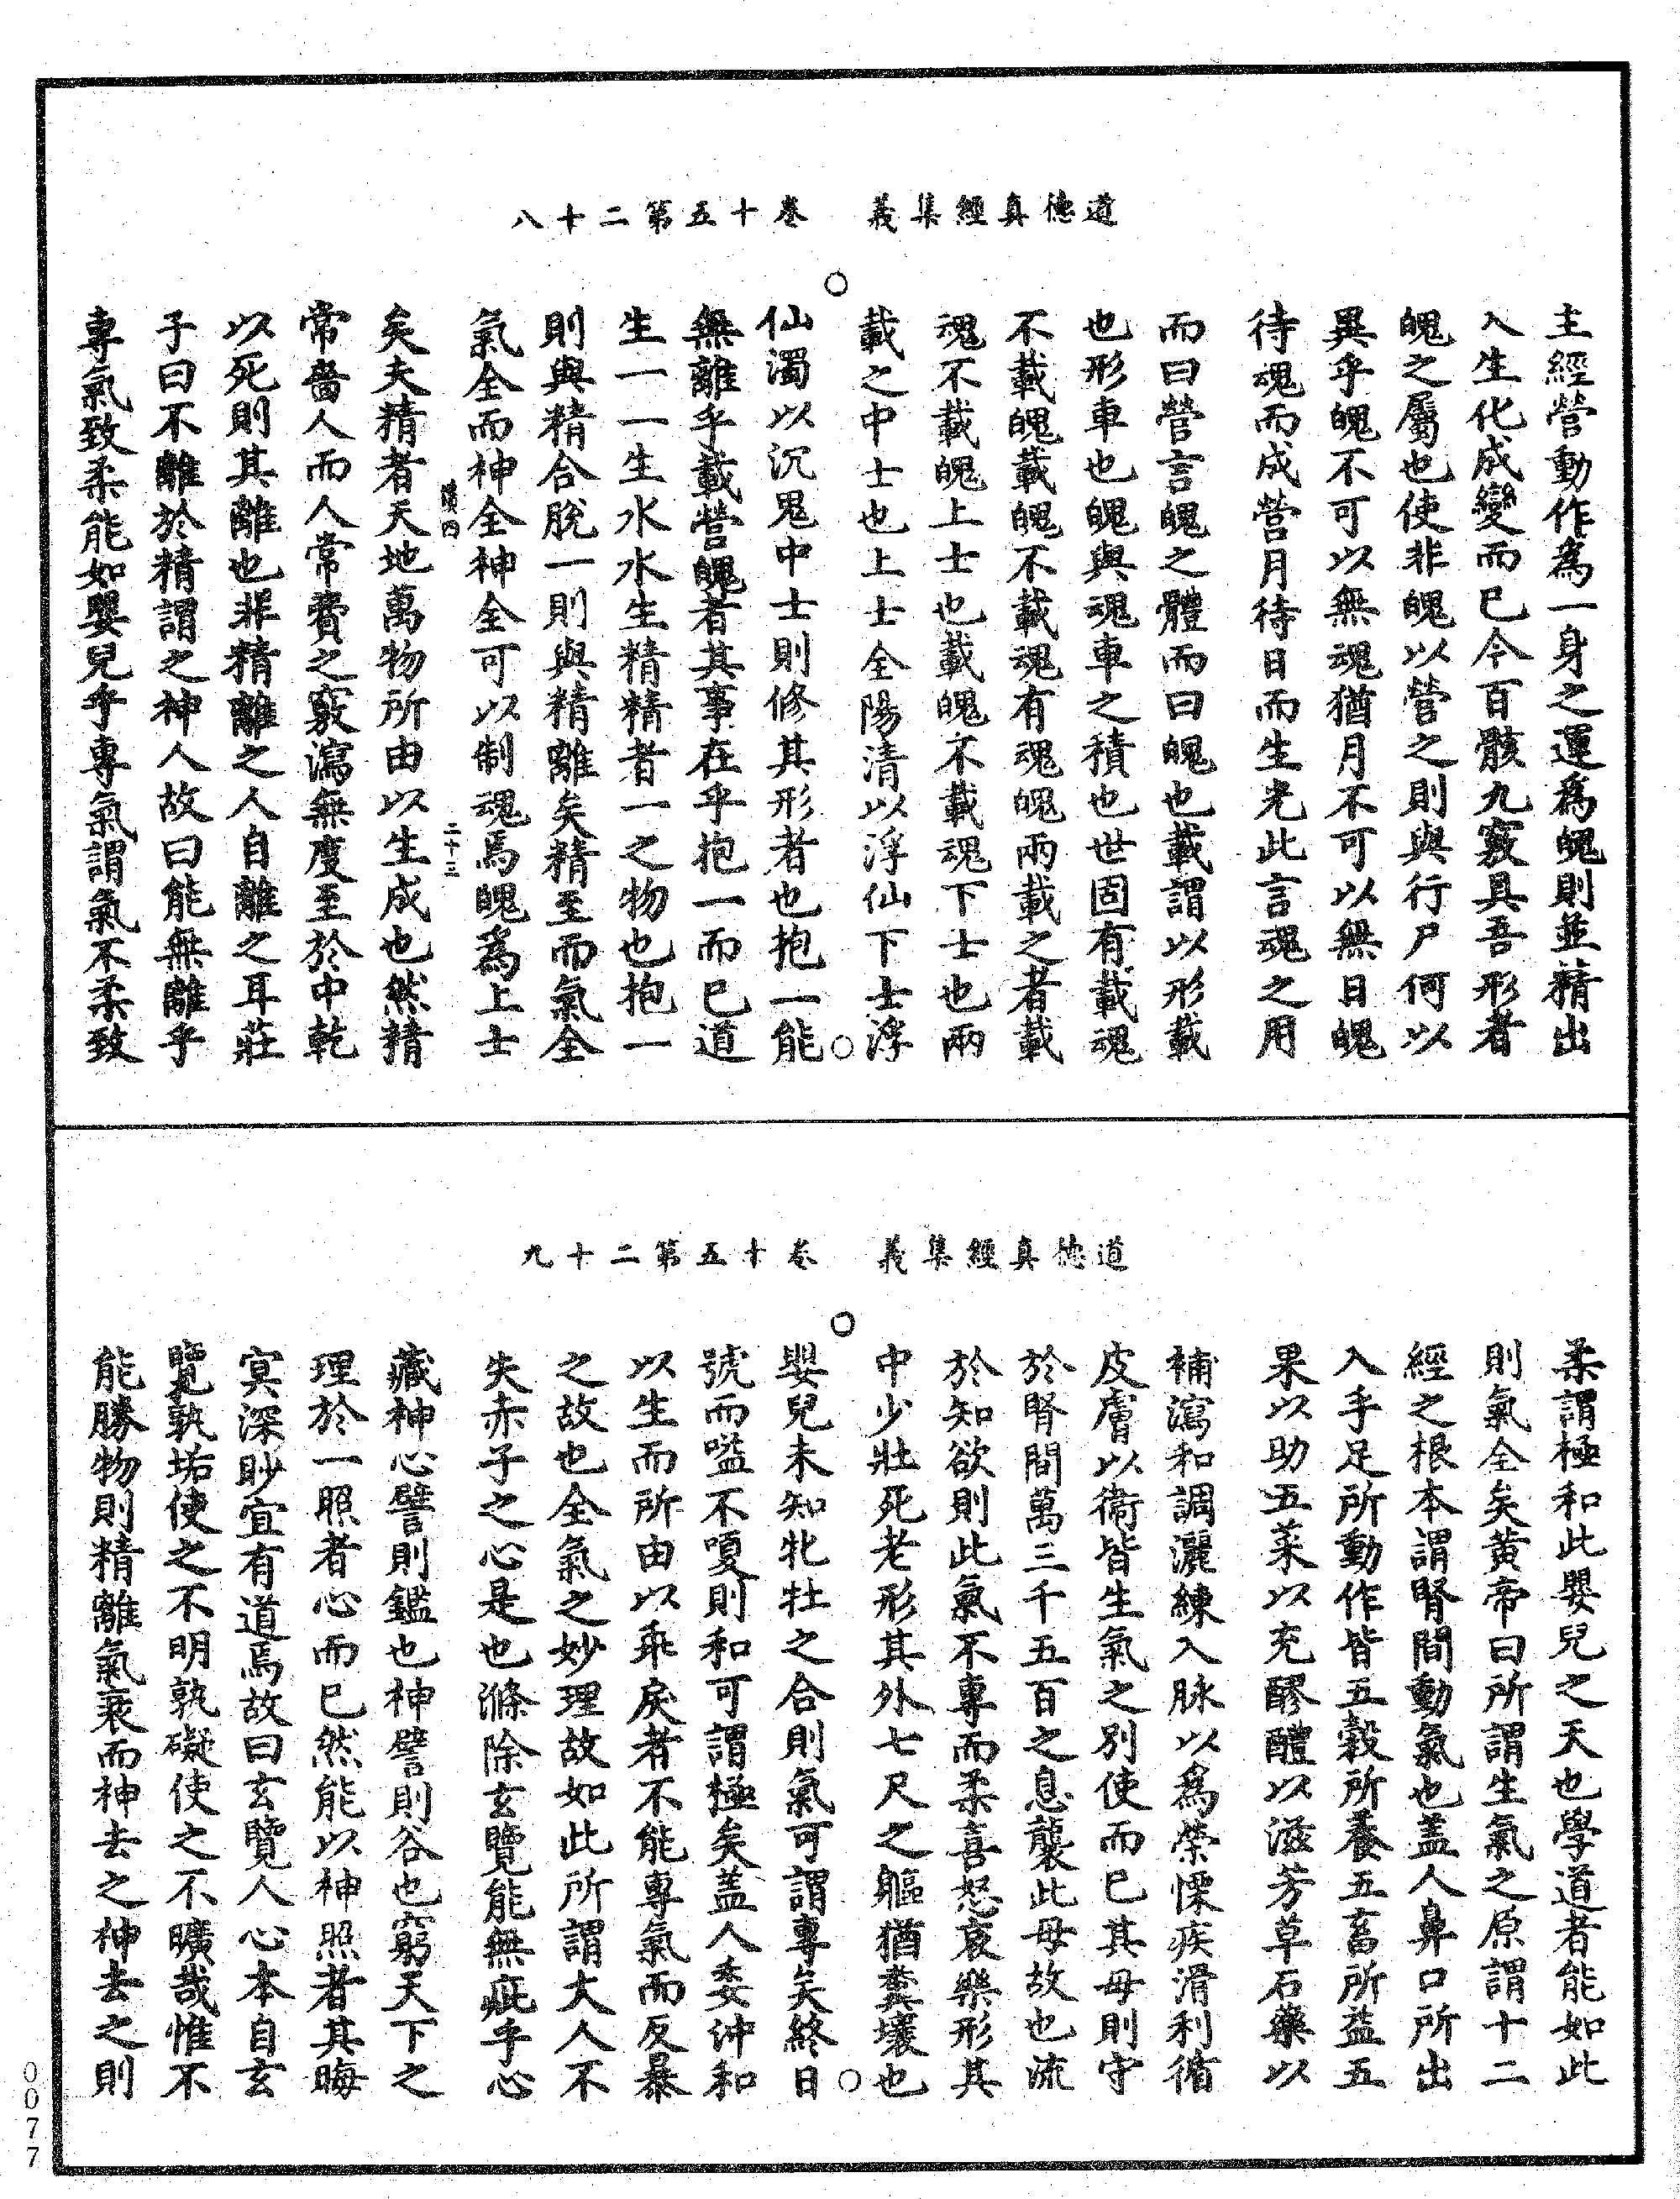 道德真經集義　卷十五第二十八
主經營動作為一身之運為魄則並精出
入生化成變而已今百骸九竅具吾形者
魄之屬也使非魄以營之則與行尸何以
異乎魄不可以無魂猶月不可以無日魄
待魂而成營月待日而生光此言魂之用
而曰營言魄之體而曰魄也載謂以形載
也形車也魄與魂車之積也世固有載魂
不載魄載魄不載魂有魂魄兩載之者載
魂不載魄上士也載魄不載魂下士也兩
載之中士也上士全陽清以浮仙下士浮
仙濁以沉鬼中士則修其形者也抱一能
無離乎載營魄者其事在乎抱一而已道
生一一生水水生精精者一之物也抱一
則與精合脫一則與精離矣精至而氣全
氣全而神全神全可以制魂焉魄為上士
二十三
矣夫精者天地萬物所由以生成也然精
常嗇人而人常費之竅瀉無度至於中乾
以死則其離也非精離之人自離之耳莊
子曰不離於精謂之神人故曰能無離乎
專氣致柔能如嬰兒乎專氣謂氣不柔致
道德真經集義　卷十五第二十九
柔謂極和此嬰兒之天也學道者能如此
則氣全矣黃帝曰所謂生氣之原謂十二
經之根本謂腎間動氣也盖人鼻口所出
入手足所動作皆五穀所養五畜所益五
果以助五菜以充醪醴以滋芳草石藥以
補瀉和調灑練入脉以為榮慄疾滑利循
皮膚以衞皆生氣之別使而已其母則守
於腎間萬三千五百之息襲此母故也流
於知欲則此氣不專而柔喜怒哀樂形其
中少壯死老形其外七尺之軀猶糞壤也
嬰兒未知牝牡之合則氣可謂專矣終日
號而嗌不嗄則和可謂極矣盖人委沖和
以生而所由以乖戾者不能專氣而反暴
之故也全氣之妙理故如此所謂大人不
失赤子之心是也滌除玄覽能無疵乎心
藏神心譬則鑑也神譬則谷也窮天下之
理於一照者心而已然能以神照者其晦
冥深眇宜有道焉故曰玄覽人心本自玄
覽孰垢使之不明孰礙使之不曠哉惟不
能勝物則精離氣衰而神去之神去之則
0077